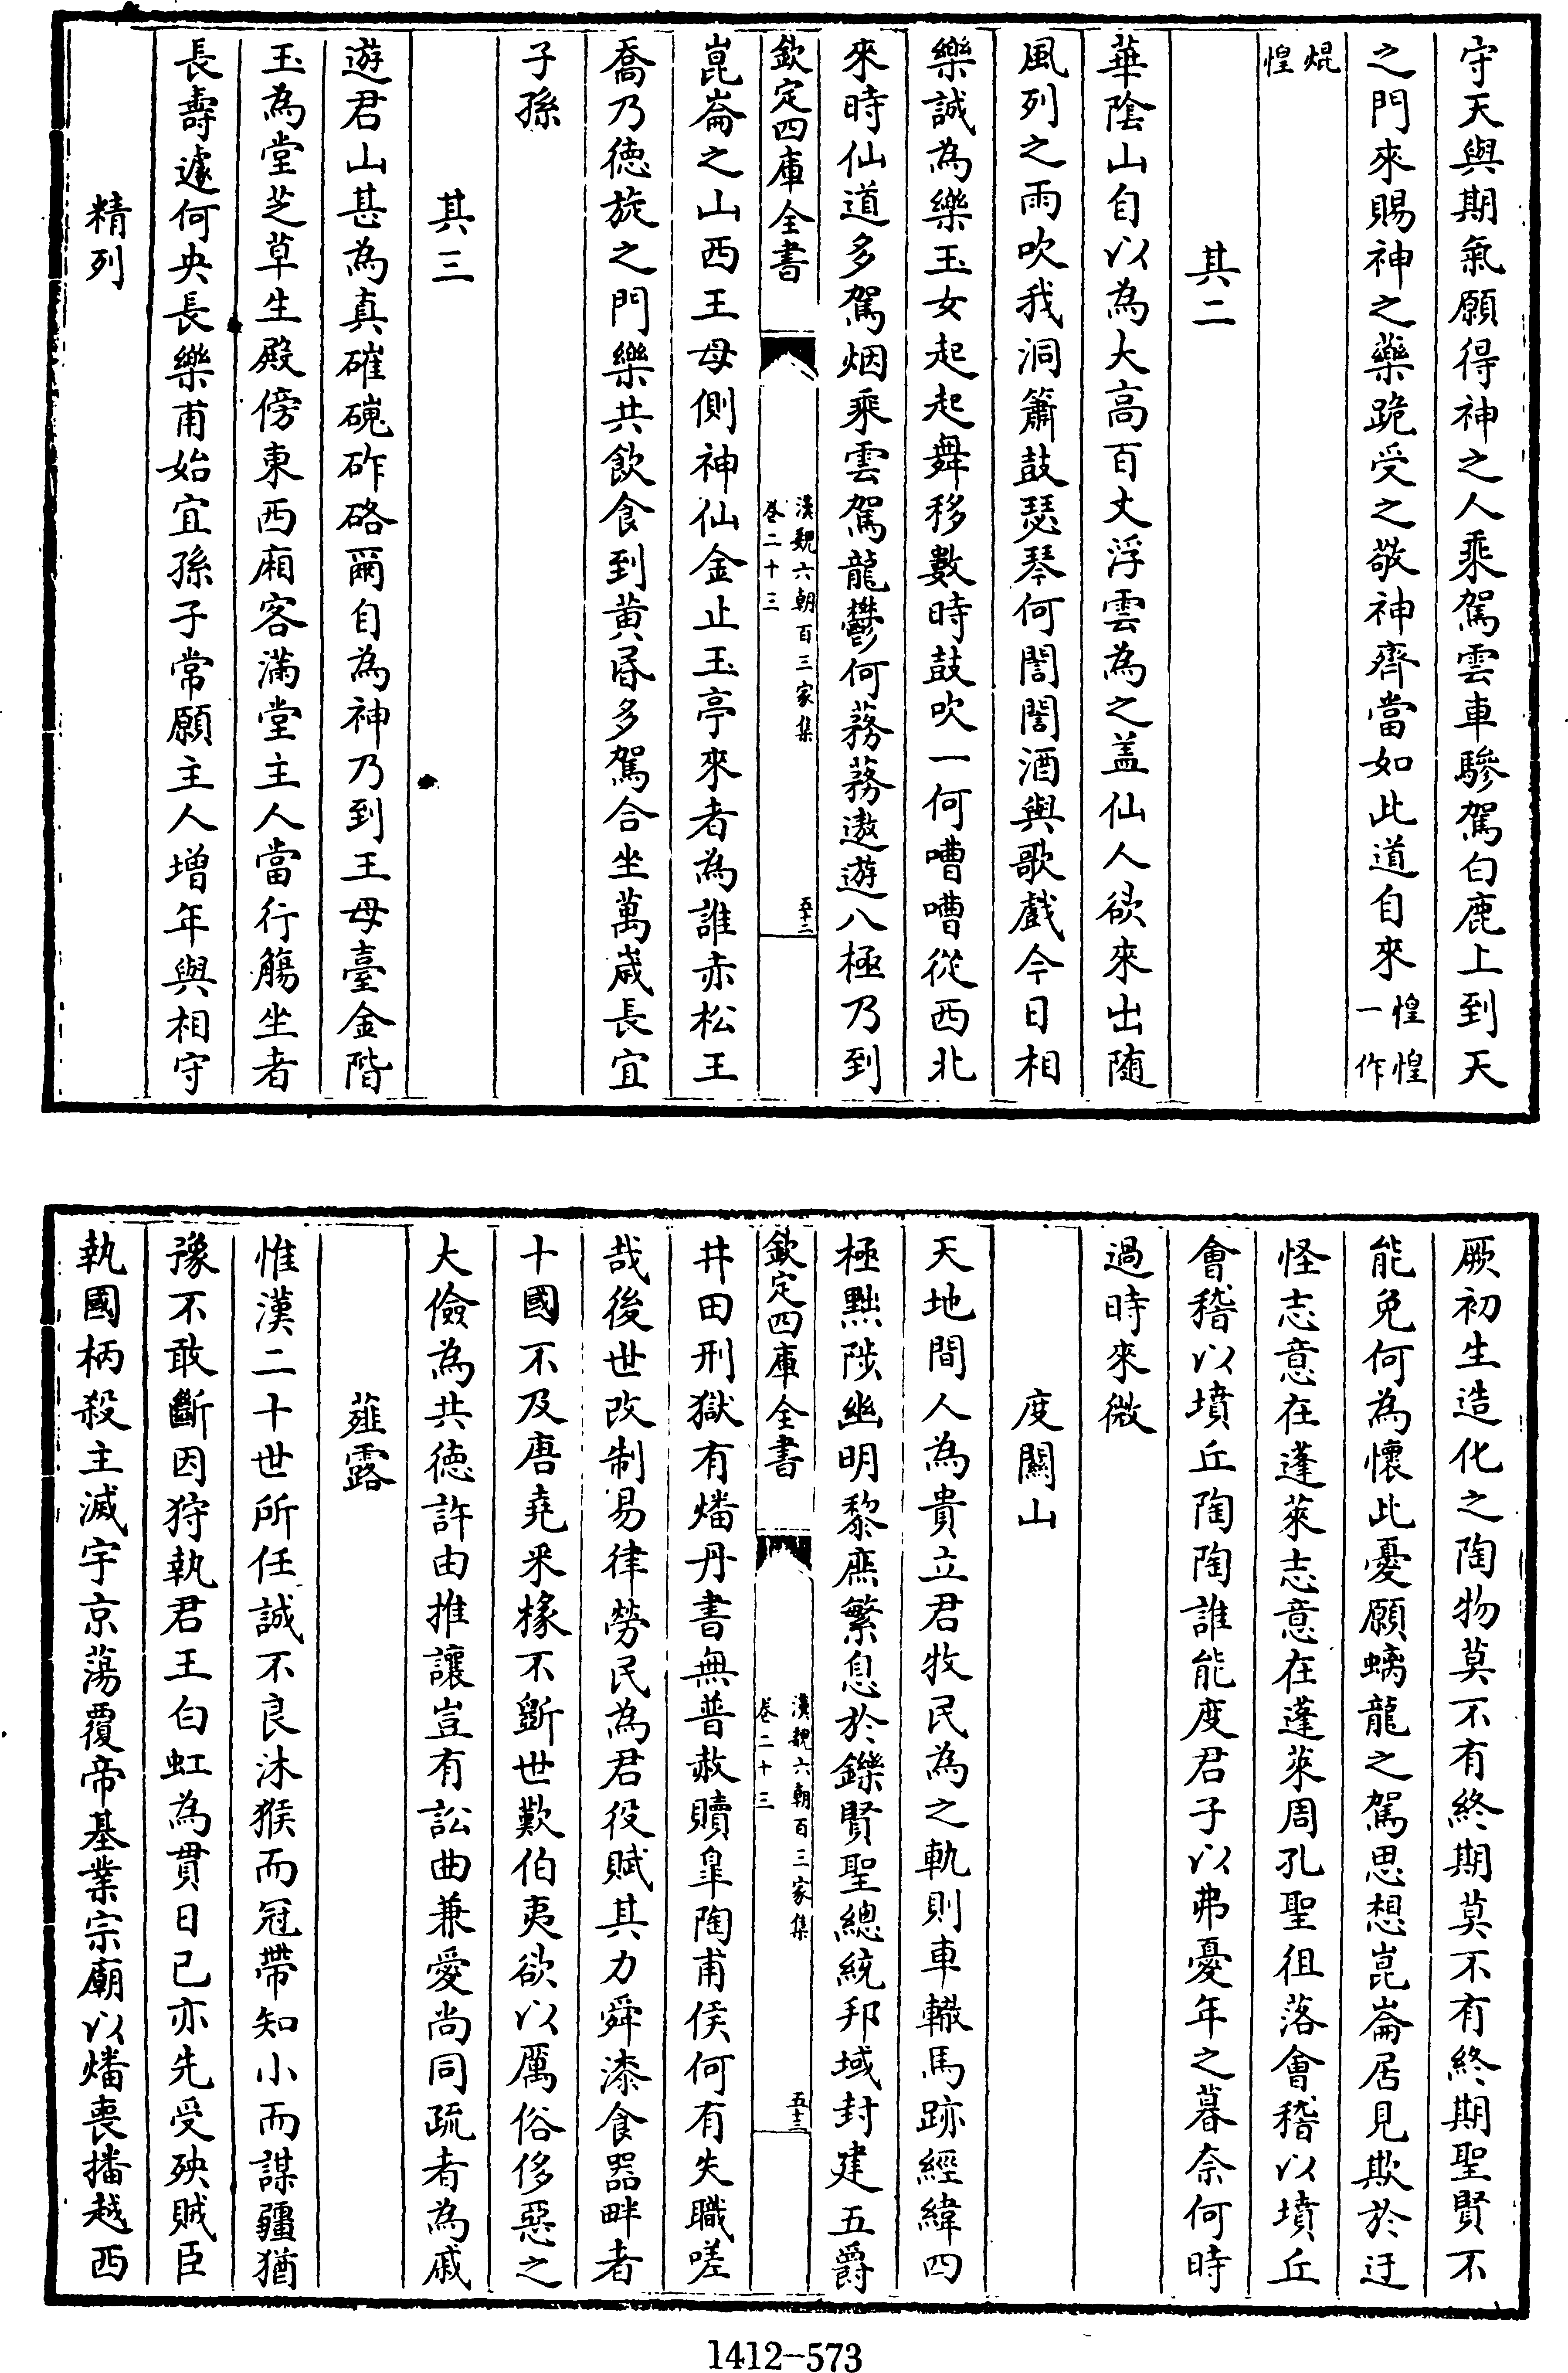 守天與期氣願得神之人乘駕雲車驂駕白鹿上到天
之門來賜神之藥跪受之敬神齊當如此道自來惶惶一作
焜惶
其二
華陰山自以為大高百丈浮雲為之盖仙人欲來出随
風列之雨吹我洞簫鼓瑟琴何誾誾酒與歌戲今日相
樂誠為樂玉女起起舞移數時鼓吹一何嘈嘈從西北
來時仙道多駕烟乘雲駕龍鬱何蓩蓩遨遊八極乃到
欽定四庫全書
漢魏六朝百三家集
卷二十三
五十二
崑崙之山西王母側神仙金止玉亭來者為誰赤松王
喬乃德旋之門樂共飲食到黄昬多駕合坐萬嵗長宜
子孫
其三
遊君山甚為真磪磈砟硌爾自為神乃到王母臺金階
玉為堂芝草生殿傍東西廂客滿堂主人當行觴坐者
長壽遽何央長樂甫始宜孫子常願主人增年與相守
精列
厥初生造化之陶物莫不有終期莫不有終期聖賢不
能免何為懷此憂願螭龍之駕思想崑崙居見欺於迂
怪志意在蓬萊志意在蓬萊周孔聖徂落會稽以墳丘
會稽以墳丘陶陶誰能度君子以弗憂年之暮奈何時
過時來微
度關山
天地間人為貴立君牧民為之軌則車轍馬跡經緯四
極黜陟幽明黎庶繁息於鑠賢聖總統邦域封建五爵
欽定四庫全書
漢魏六朝百三家集
卷二十三
五十三
井田刑獄有燔丹書無普赦贖臯陶甫侯何有失職嗟
哉後世改制易律勞民為君役賦其力舜漆食器畔者
十國不及唐堯采椽不斵世歎伯夷欲以厲俗侈惡之
大儉為共德許由推讓豈有訟曲兼愛尚同疏者為戚
薤露
惟漢二十世所任誠不良沐猴而冠帶知小而謀疆猶
豫不敢斷因狩執君王白虹為貫日已亦先受殃賊臣
執國柄殺主滅宇京蕩覆帝基業宗廟以燔喪播越西
1412-573